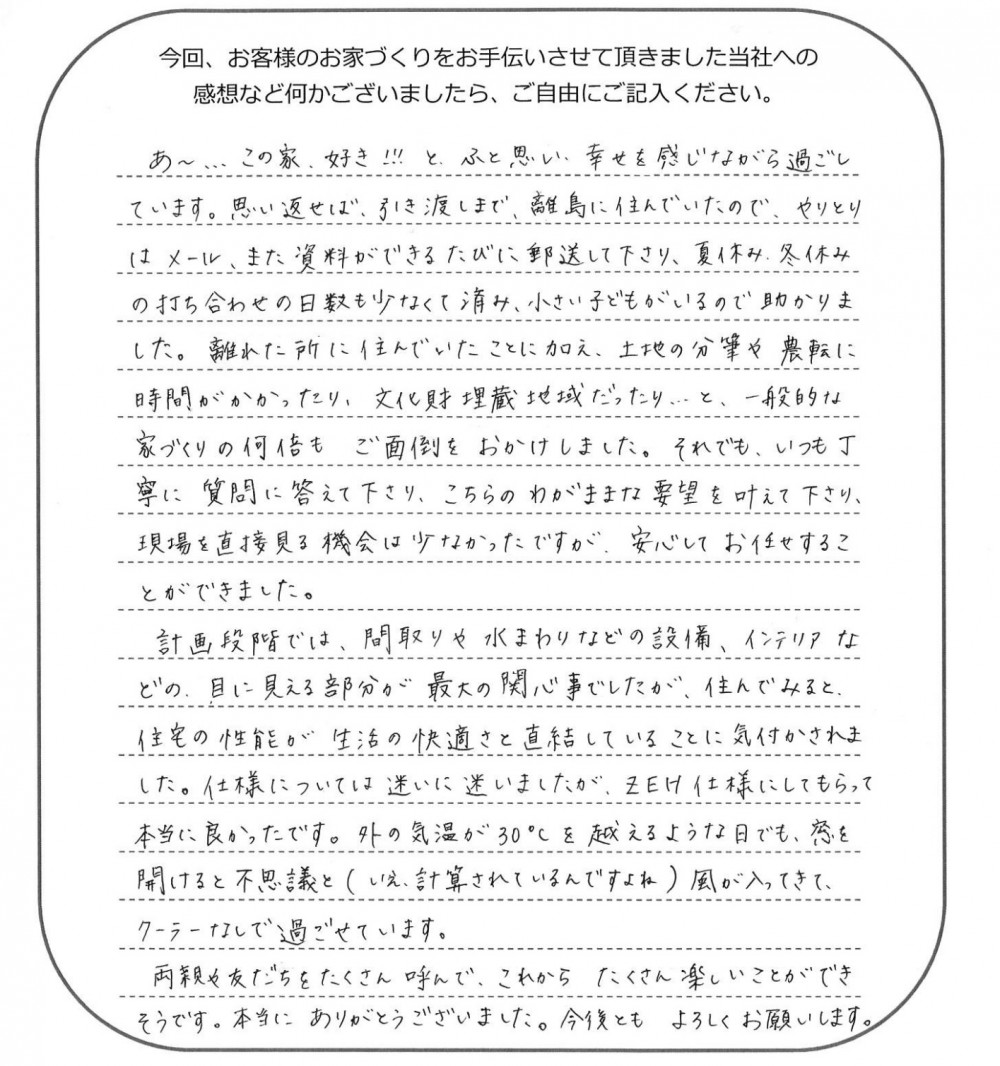 今回、お客様のお家づくりをお手伝いさせて頂きました当社への
感想など何かございましたら、ご自由にご記入ください。
あ〜…この家、好き!!!と、ふと思い、幸せを感じながら過ごし
ています。思い返せば、引き渡しまで、離島に住んでいたので、やりとり
はメール、また資料ができるたびに郵送して下さり、夏休み、冬休み
の打ち合わせの日数も少なくて済み、小さい子どもがいるので助かりま
した。離れた所に住んでいたことに加え、土地の分筆や農転に
時間がかかったり、文化財埋蔵地域だったり…と、一般的な
家づくりの何倍もご面倒をおかけしました。それでも、いつも丁
寧に質問に答えて下さり、こちらのわがままな要望を叶えて下さり、
現場を直接見る機会は少なかったですが、安心してお任せするこ
とができました。
計画段階では、間取りや水まわりなどの設備、インテリアな
どの、目に見える部分が最大の関心事でしたが、住んでみると、
住宅の性能が生活の快適さと直結していることに気付かされま
した。仕様については迷いに迷いましたが、ZEH仕様にしてもらって
本当に良かったです。外の気温が30℃を越えるような日でも、窓を
開けると不思議と(いえ、計算されているんですよね)風が入ってきて、
クーラーなしで過ごせています。
両親や友だちをたくさん呼んで、これからたくさん楽しいことができ
そうです。本当にありがとうございました。今後ともよろしくお願いします。